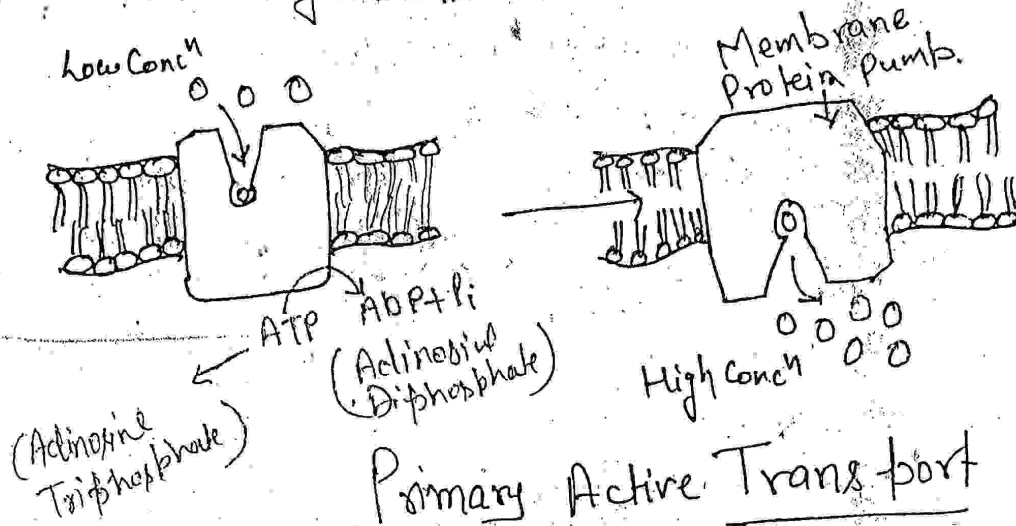 Low Concⁿ
Membrane
Protein Pump.
ATP
ADP+Pi
(Adinosine
Diphosphate)
(Adinosine
Triphosphate)
High Concⁿ
Primary Active Transport